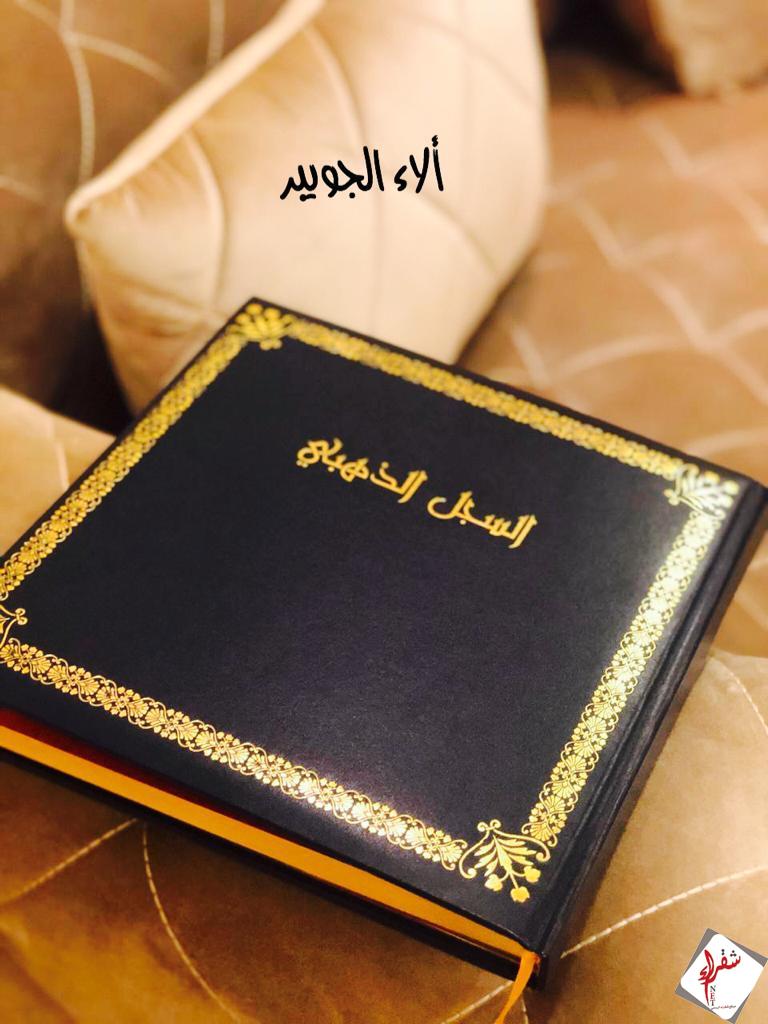 ألاء الجوبير
السجل الذهبي
شقراء
NET